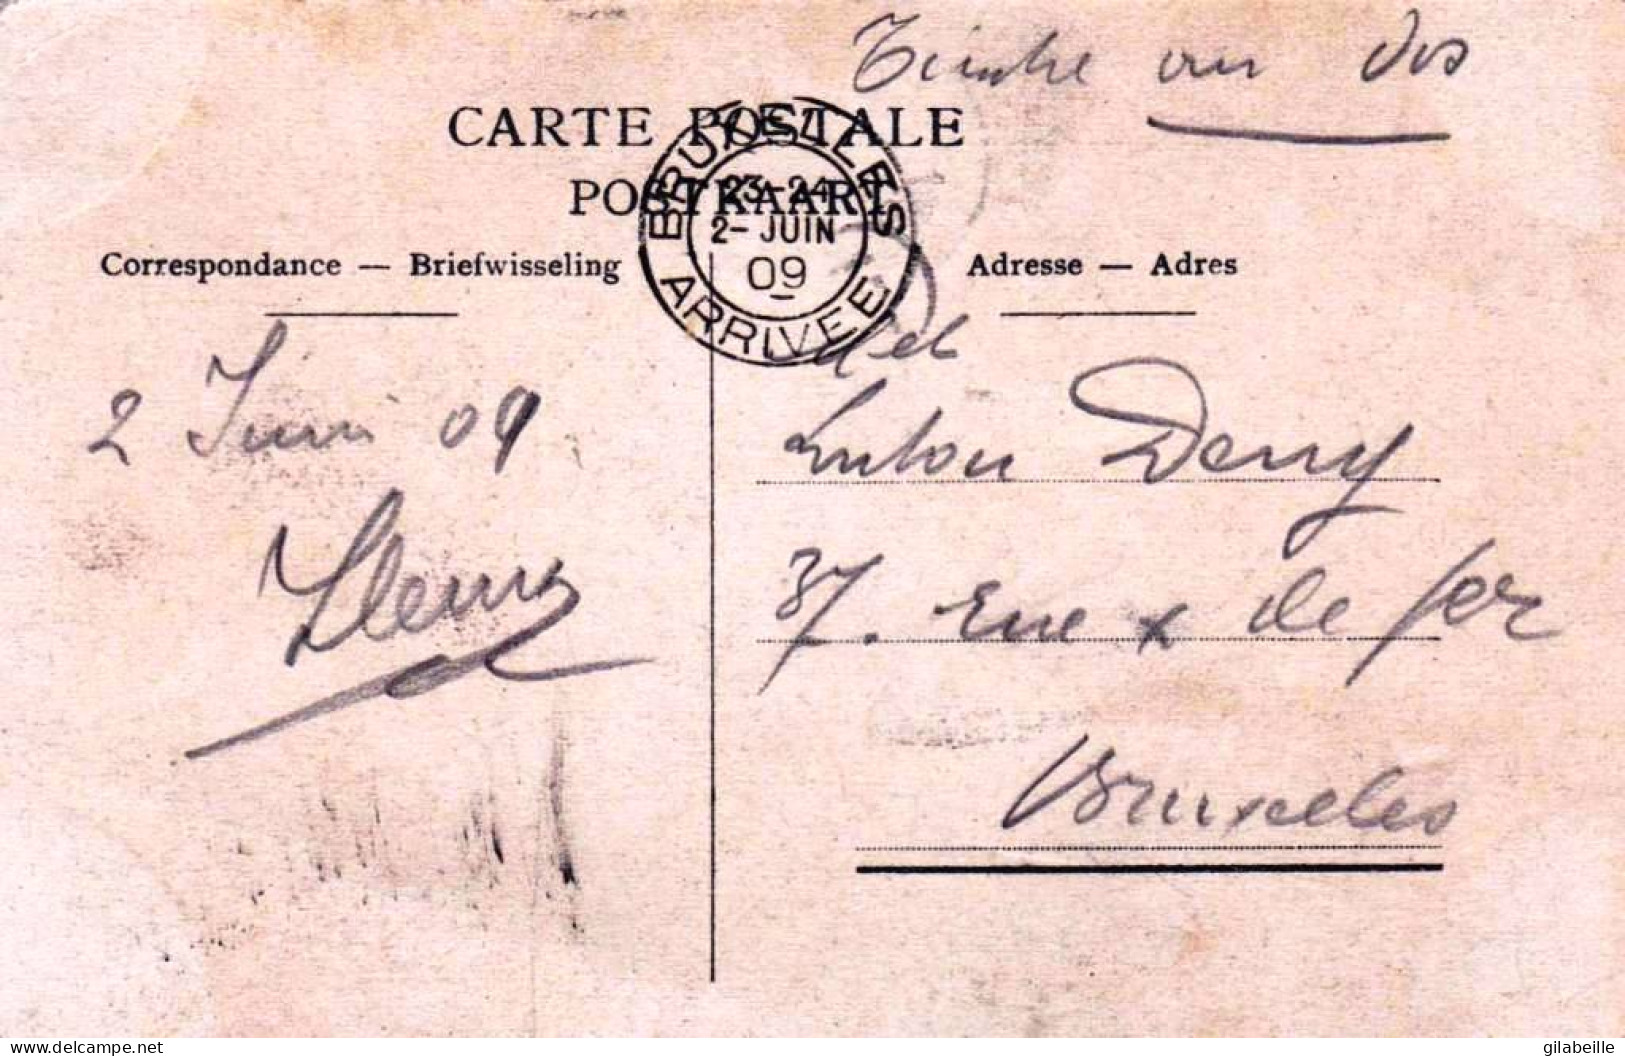 Timbre au dos
CARTE POSTALE
POSTKAART
BRUXELLES
23-24
2-JUIN
09
ARRIVEE
Correspondance — Briefwisseling
Adresse — Adres
2 Juin 09
Denry
37. Rue x de fer
Bruxelles
delcampe.net
gilabeille